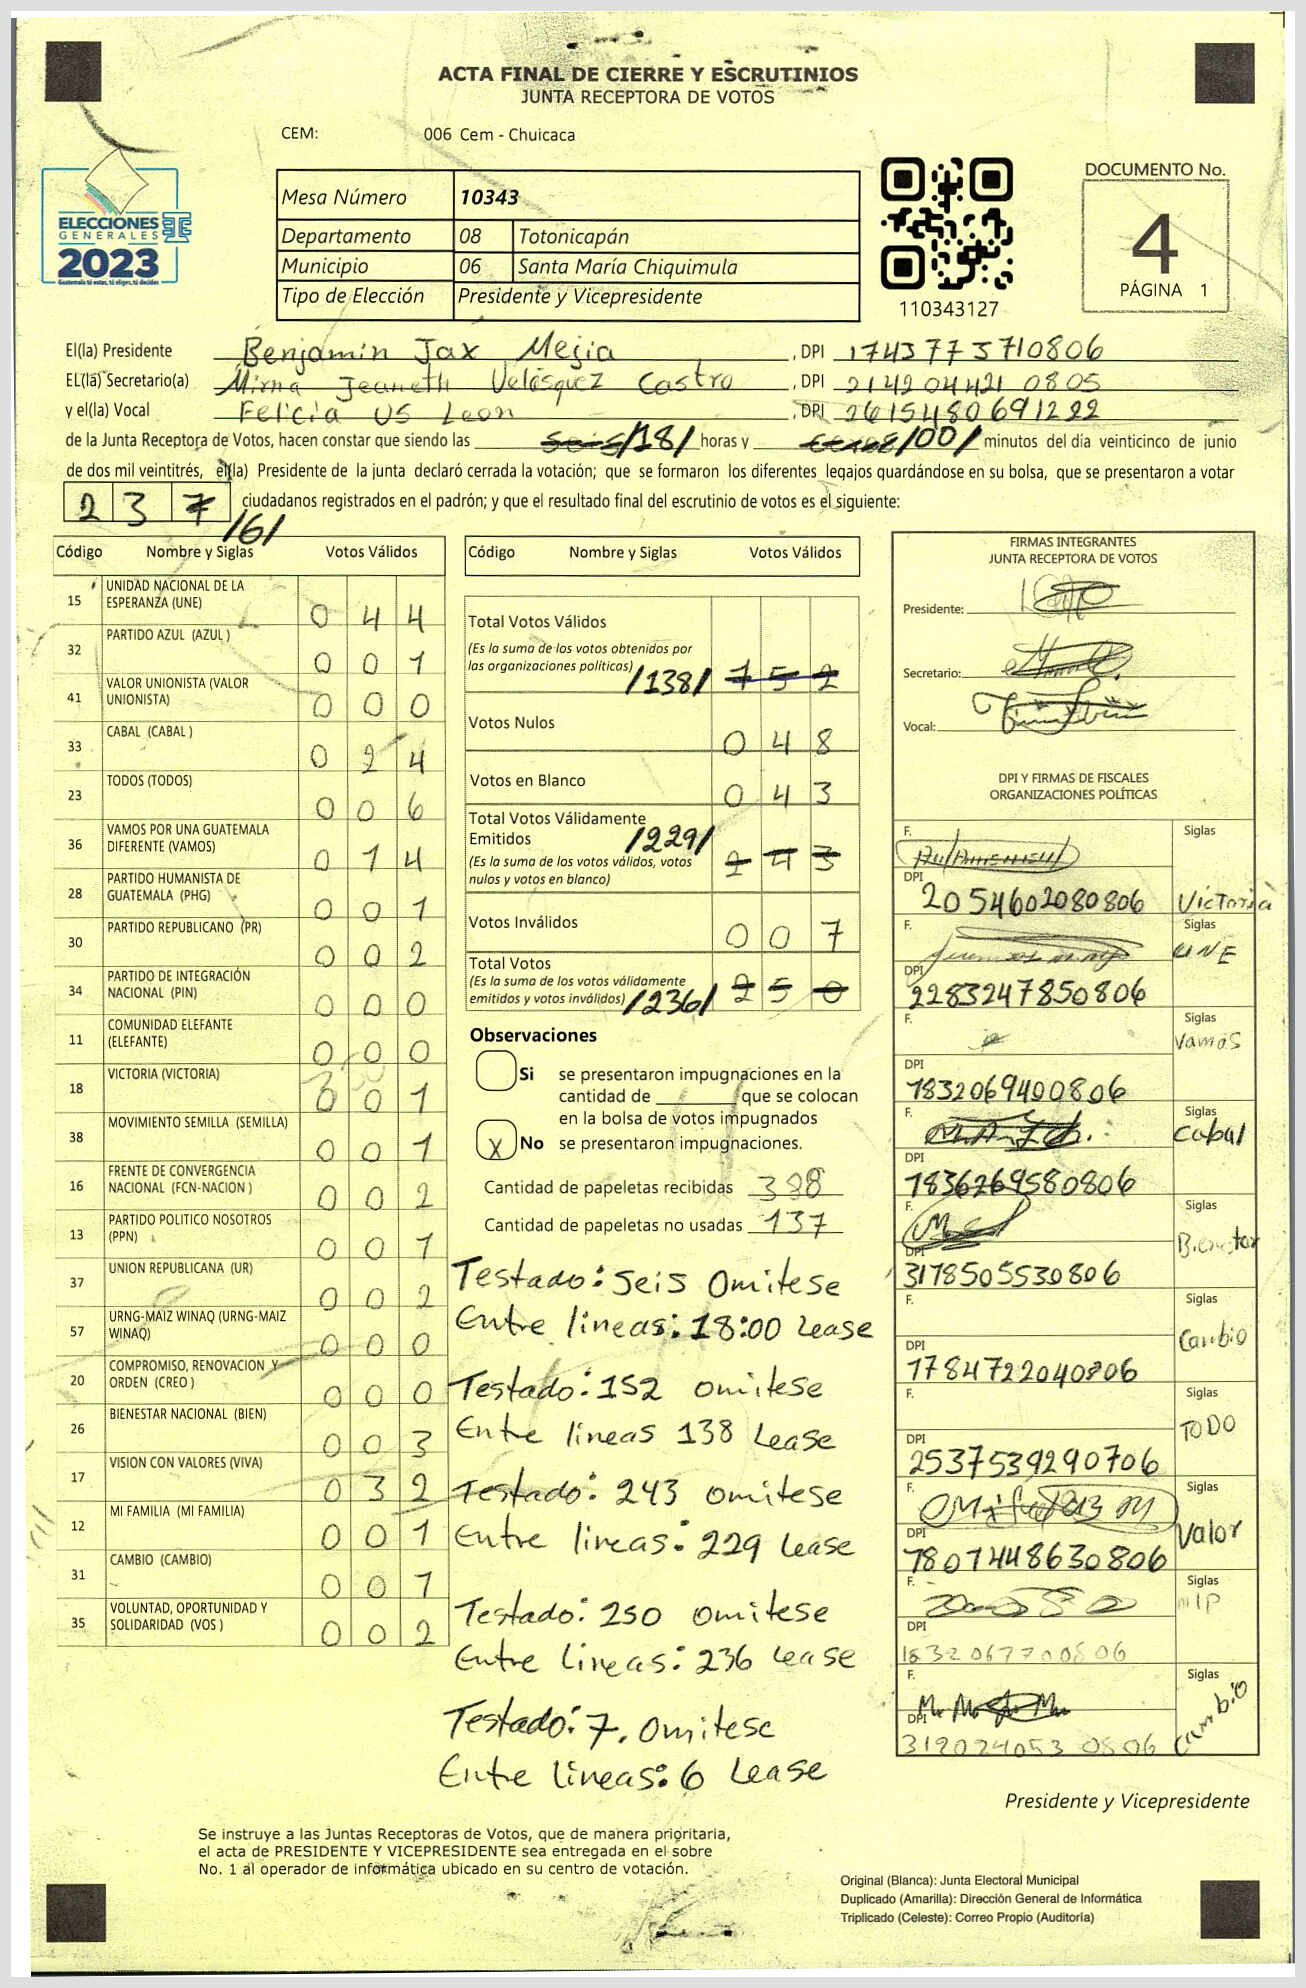 ACTA FINAL DE CIERRE Y ESCRUTINIOS
JUNTA RECEPTORA DE VOTOS
CEM: 006 Cem - Chuicaca
ELECCIONES
GENERALES
2023
Guatemala tú votas, tú eliges, tú decides
Mesa Número 10343
Departamento 08 Totonicapán
Municipio 06 Santa María Chiquimula
Tipo de Elección Presidente y Vicepresidente
110343127
DOCUMENTO No.
4
PÁGINA 1
El(la) Presidente Benjamin Jax Mejia, DPI 1743773710806
EL(la) Secretario(a) Mirna Jeaneth Velásquez Castro, DPI 2142044210805
y el(la) Vocal Felicia US Leon, DPI 2615480691222
de la Junta Receptora de Votos, hacen constar que siendo las seis /18/ horas y /00/ minutos del día veinticinco de junio
de dos mil veintitrés, el(la) Presidente de la junta declaró cerrada la votación; que se formaron los diferentes legajos guardándose en su bolsa, que se presentaron a votar
2 3 7 /6/ ciudadanos registrados en el padrón; y que el resultado final del escrutinio de votos es el siguiente:
Código Nombre y Siglas Votos Válidos
15 UNIDAD NACIONAL DE LA ESPERANZA (UNE) 0 4 4
32 PARTIDO AZUL (AZUL ) 0 0 1
41 VALOR UNIONISTA (VALOR UNIONISTA) 0 0 0
33 CABAL (CABAL ) 0 2 4
23 TODOS (TODOS) 0 0 6
36 VAMOS POR UNA GUATEMALA DIFERENTE (VAMOS) 0 1 4
28 PARTIDO HUMANISTA DE GUATEMALA (PHG) 0 0 1
30 PARTIDO REPUBLICANO (PR) 0 0 2
34 PARTIDO DE INTEGRACIÓN NACIONAL (PIN) 0 0 0
11 COMUNIDAD ELEFANTE (ELEFANTE) 0 0 0
18 VICTORIA (VICTORIA) 0 0 1
38 MOVIMIENTO SEMILLA (SEMILLA) 0 0 1
16 FRENTE DE CONVERGENCIA NACIONAL (FCN-NACION ) 0 0 2
13 PARTIDO POLITICO NOSOTROS (PPN) 0 0 1
37 UNION REPUBLICANA (UR) 0 0 2
57 URNG-MAIZ WINAQ (URNG-MAIZ WINAQ) 0 0 0
20 COMPROMISO, RENOVACION Y ORDEN (CREO ) 0 0 0
26 BIENESTAR NACIONAL (BIEN) 0 0 3
17 VISION CON VALORES (VIVA) 0 3 2
12 MI FAMILIA (MI FAMILIA) 0 0 1
31 CAMBIO (CAMBIO) 0 0 1
35 VOLUNTAD, OPORTUNIDAD Y SOLIDARIDAD (VOS ) 0 0 2
Código Nombre y Siglas Votos Válidos
Total Votos Válidos
(Es la suma de los votos obtenidos por
las organizaciones políticas) /138/ 1 5 2
Votos Nulos 0 4 8
Votos en Blanco 0 4 3
Total Votos Válidamente
Emitidos /229/ 2 4 3
(Es la suma de los votos válidos, votos
nulos y votos en blanco)
Votos Inválidos 0 0 7
Total Votos
(Es la suma de los votos válidamente
emitidos y votos inválidos) /236/ 2 5 0
Observaciones
Si se presentaron impugnaciones en la
cantidad de ________ que se colocan
en la bolsa de votos impugnados
X No se presentaron impugnaciones.
Cantidad de papeletas recibidas
Cantidad de papeletas no usadas 137
Testado: Seis Omitese
Entre lineas: 18:00 Lease
Testado: 152 omitese
Entre lineas 138 Lease
Testado: 243 omitese
Entre lineas: 229 Lease
Testado: 250 omitese
Entre lineas: 236 Lease
Testado: 7. Omitese
Entre lineas: 6 Lease
FIRMAS INTEGRANTES
JUNTA RECEPTORA DE VOTOS
Presidente:
Secretario:
Vocal:
DPI Y FIRMAS DE FISCALES
ORGANIZACIONES POLÍTICAS
F. Siglas
DPI 2054602080806 Victoria
F. Siglas UNE
DPI 2283247850806
F. Siglas Vamos
DPI 1832069400806
F. Siglas Cabal
DPI 1836269580806
F. Siglas Bienestar
DPI 3178505530806
F. Siglas Cambio
DPI 1784722040806
F. Siglas TODO
DPI 2537539290706
F. Siglas Valor
DPI 1807448630806
F. Siglas MLP
DPI 1832067700806
F. Siglas Cambio
DPI 3120240530806
Presidente y Vicepresidente
Se instruye a las Juntas Receptoras de Votos, que de manera prioritaria,
el acta de PRESIDENTE Y VICEPRESIDENTE sea entregada en el sobre
No. 1 al operador de informática ubicado en su centro de votación.
Original (Blanca): Junta Electoral Municipal
Duplicado (Amarilla): Dirección General de Informática
Triplicado (Celeste): Correo Propio (Auditoría)